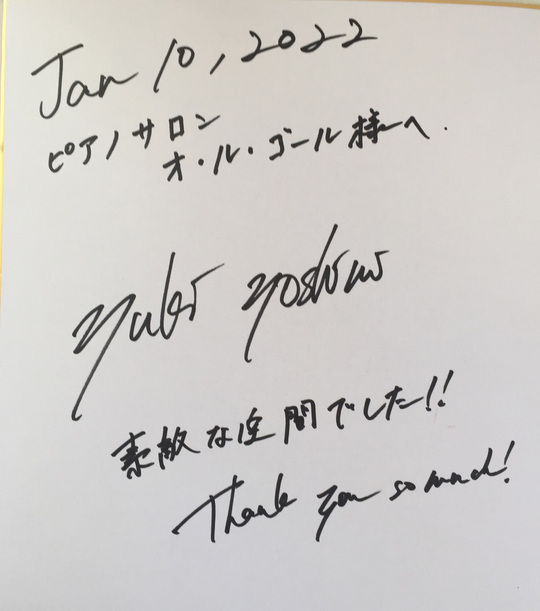 Jan 10, 2022
ピアノサロン
オ・ル・ゴール様へ.
Yuki Yoshimi
素敵な空間でした!!
Thank you so much!